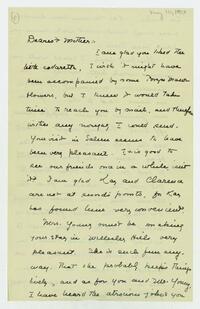 Dearest Mother:
I am glad you liked the
little cedarettes, I wish it might have
been accompanied by some
flowers, but I knew it would take
time to reach you by mail, and
wither any nosegay I could send.
Your visit in Salem seems to have
been very pleasant. It is good to
see our friends once in a while, isn't
it. I am glad Kay and Clarence
are not at sword's points, for Kay
has found him very convenient.
Mrs. Young must be making
your stay in Wellesley Hills very
pleasant. She is such fun any-
way. That she probably keeps things
lively, and as for you and Mr. Young,
I have heard the atrocious jokes you